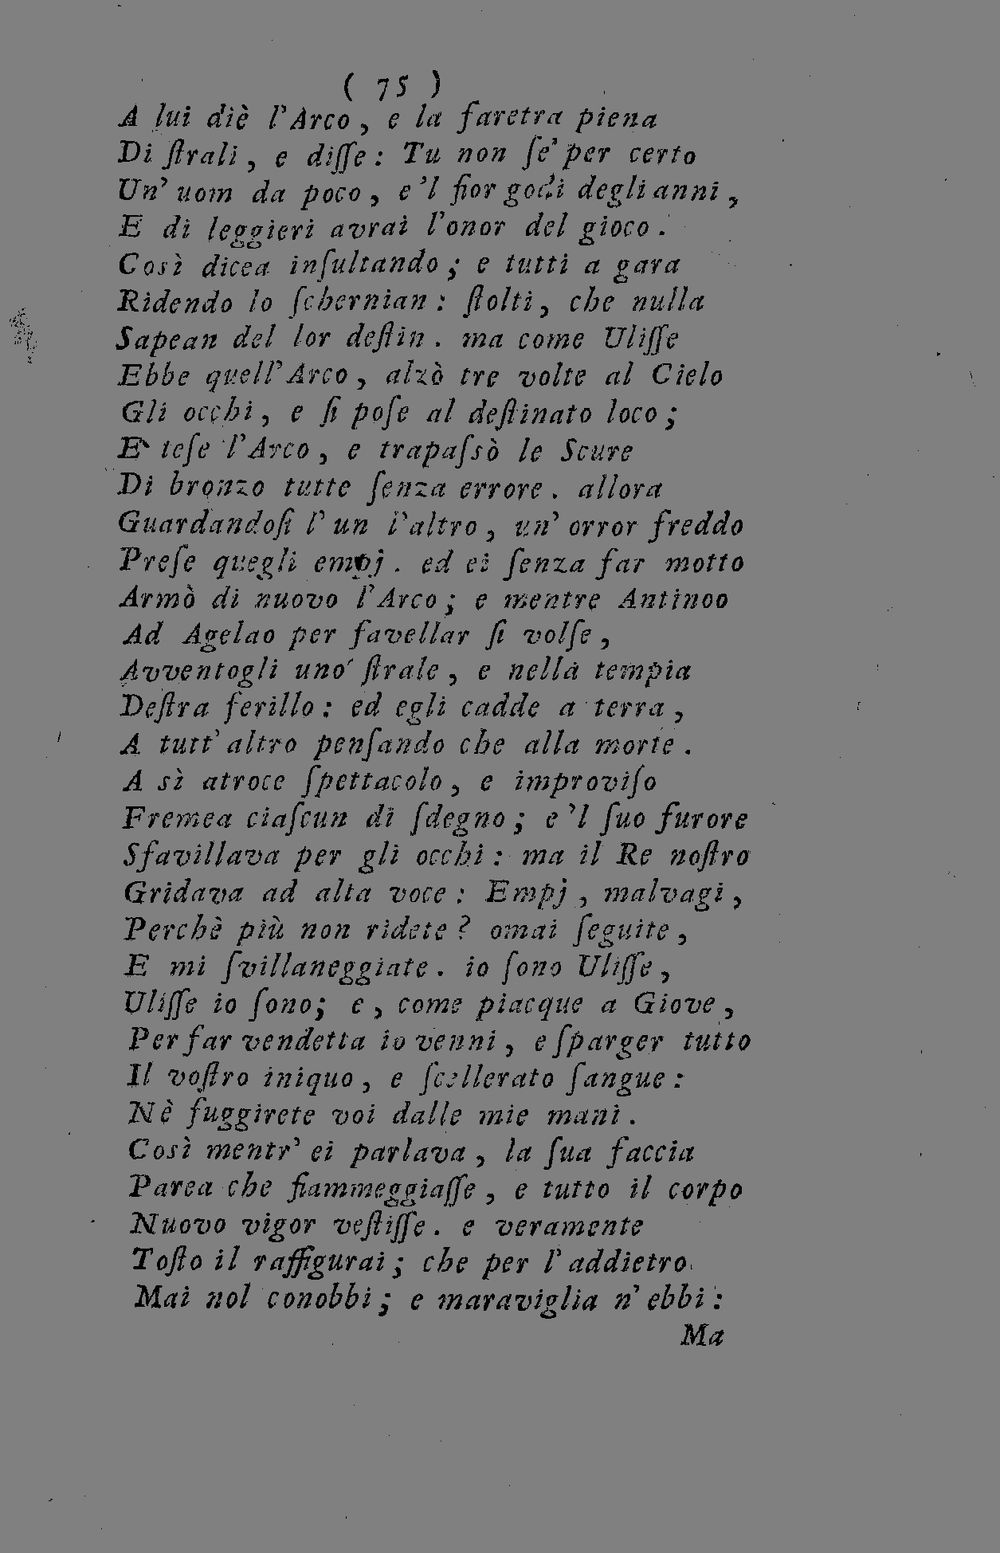 ( 75 )
A lui diè l'Arco, e la faretra piena
Di ſtrali, e diſſe: Tu non ſe' per certo
Un' uom da poco, e 'l fior godi degli anni,
E di leggieri avrai l'onor del gioco.
Così dicea inſultando; e tutti a gara
Ridendo lo ſchernian: ſtolti, che nulla
Sapean del lor deſtin. ma come Uliſſe
Ebbe quell'Arco, alzò tre volte al Cielo
Gli occhi, e ſi poſe al deſtinato loco;
E teſe l'Arco, e trapaſsò le Scure
Di bronzo tutte ſenza errore. allora
Guardandoſi l' un l'altro, un' orror freddo
Preſe quegli empj. ed ei ſenza far motto
Armò di nuovo l'Arco; e mentre Antinoo
Ad Agelao per favellar ſi volſe,
Avventogli uno ſtrale, e nella tempia
Deſtra ferillo: ed egli cadde a terra,
A tutt' altro penſando che alla morte.
A sì atroce ſpettacolo, e improviſo
Fremea ciaſcun di ſdegno; e 'l ſuo furore
Sfavillava per gli occhi: ma il Re noſtro
Gridava ad alta voce: Empj, malvagi,
Perchè più non ridete? omai ſeguite,
E mi ſvillaneggiate. io ſono Uliſſe,
Uliſſe io ſono; e, come piacque a Giove,
Per far vendetta io venni, e ſparger tutto
Il voſtro iniquo, e ſcellerato ſangue:
Nè fuggirete voi dalle mie mani.
Così mentr' ei parlava, la ſua faccia
Parea che fiammeggiaſſe, e tutto il corpo
Nuovo vigor veſtiſſe. e veramente
Toſto il raffigurai; che per l' addietro
Mai nol conobbi; e maraviglia n' ebbi:
Ma